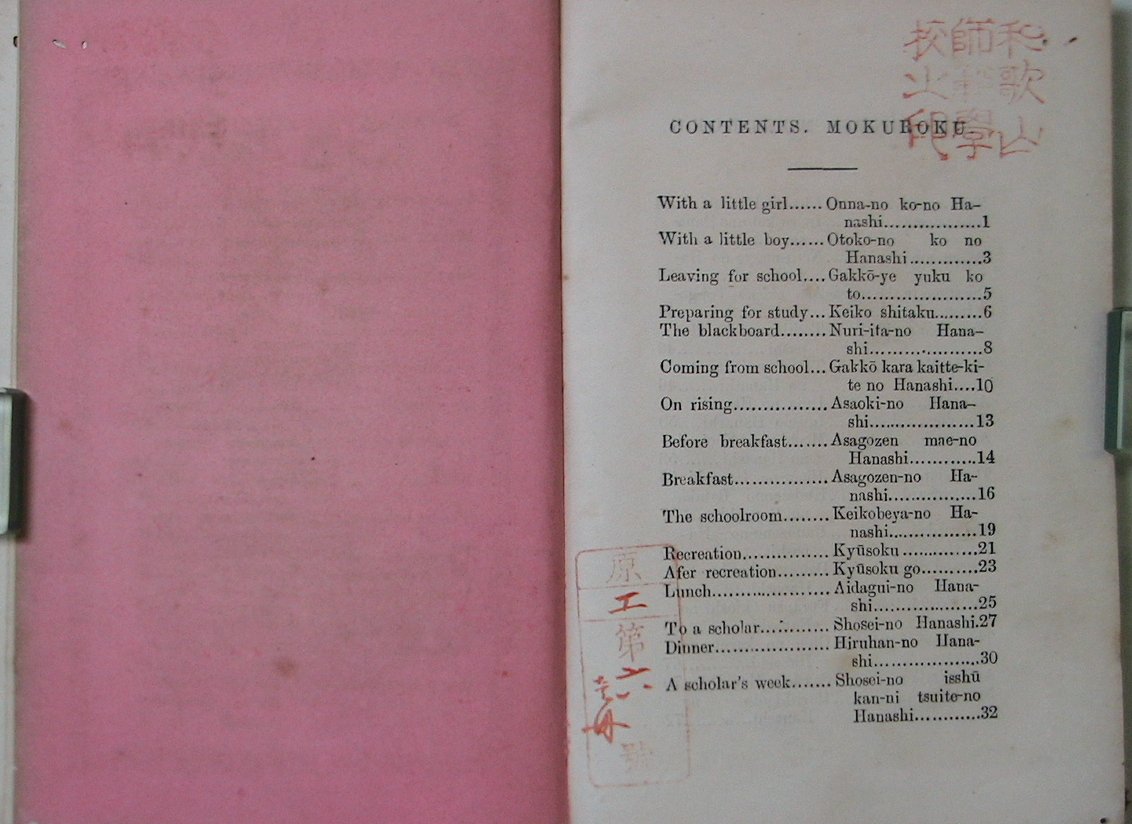 和歌山
師範學
校之印
CONTENTS. MOKUROKU.
With a little girl...... Onna-no ko-no Ha-
nashi.................1
With a little boy...... Otoko-no ko no
Hanashi.............3
Leaving for school.... Gakkō-ye yuku ko
to.....................5
Preparing for study... Keiko shitaku.........6
The blackboard........ Nuri-ita-no Hana-
shi....................8
Coming from school... Gakkō kara kaitte-ki-
te no Hanashi....10
On rising................ Asaoki-no Hana-
shi...................13
Before breakfast....... Asagozen mae-no
Hanashi............14
Breakfast................ Asagozen-no Ha-
nashi................16
The schoolroom........ Keikobeya-no Ha-
nashi...............19
Recreation............... Kyūsoku .............21
Afer recreation......... Kyūsoku go..........23
Lunch.................... Aidagui-no Hana-
shi...................25
To a scholar............ Shosei-no Hanashi.27
Dinner................... Hiruhan-no Hana-
shi...................30
A scholar's week....... Shosei-no isshū
kan-ni tsuite-no
Hanashi............32
原
工
第
六
號